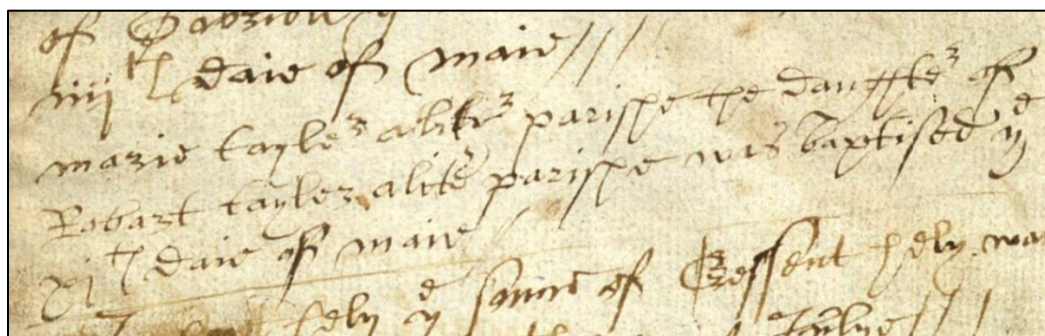 of
iiijth daie of maie
marie tayler aliter parishe the daughter of
Robart tayler aliter parishe was baptised ye
xjth daie of maie
hely ye sonne of Gressent hely was